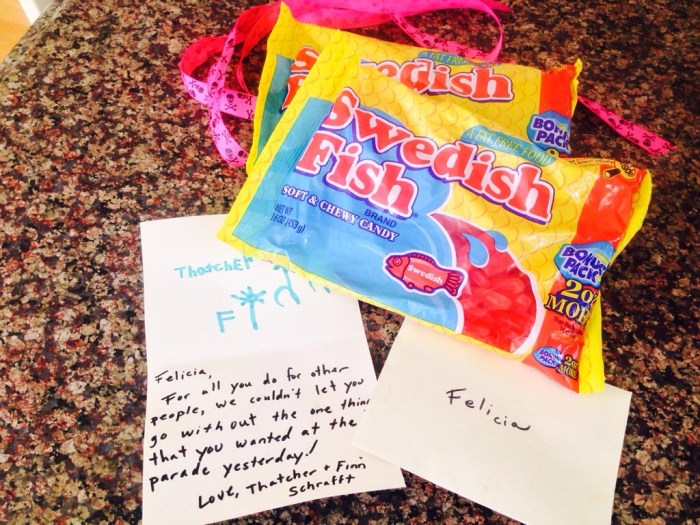 edish
A FAT FREE
Swedish
A FAT FREE FOOD
Fish
BRAND
SOFT & CHEWY CANDY
NET WT
(453g)
Swedish
BONUS
PACK
Thatcher
Felicia,
For all you do for other
people, we couldn't let you
go with out the one thing
that you wanted at the
parade yesterday!
Love, Thatcher + Finn
Schrafft
Felicia